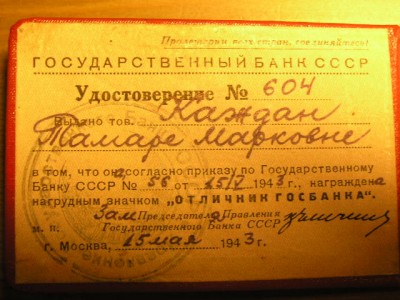 Пролетарии всех стран, соединяйтесь!
ГОСУДАРСТВЕННЫЙ БАНК СССР
Удостоверение № 604
Выдано тов. Каждан
Тамаре Марковне
в том, что она согласно приказу по Государственному
Банку СССР № 56 от 15/V 1943г., награждена
нагрудным значком „ОТЛИЧНИК ГОСБАНКА".
Зам Председателя Правления
м. п. Государственного Банка СССР
г. Москва, 15 мая 1943г.